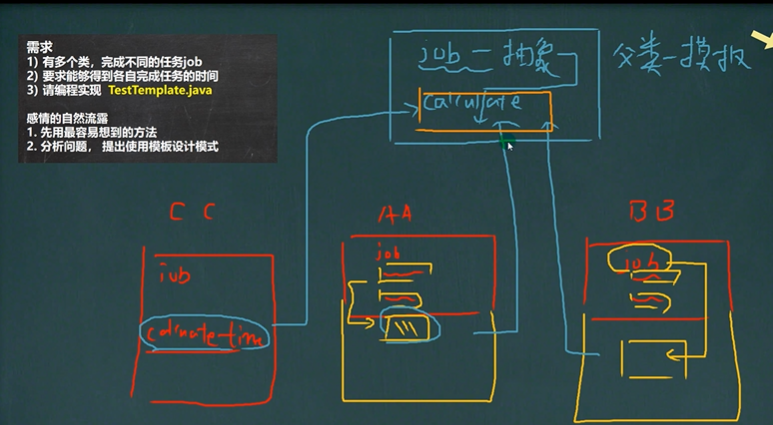 需求
1) 有多个类，完成不同的任务job
2) 要求能够得到各自完成任务的时间
3) 请编程实现 TestTemplate.java
感情的自然流露
1. 先用最容易想到的方法
2. 分析问题， 提出使用模板设计模式
job — 抽象
calculate
父类-模板
CC
job
calculate-time
AA
job
BB
job